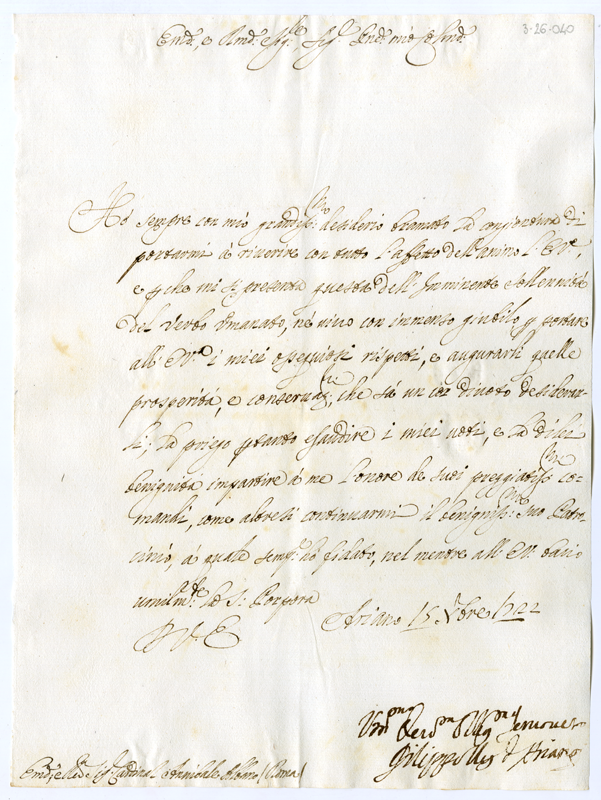 3-26-040
Em.mo, e Rmo. Sig.re Sig.r Pnd.e mio Colend.mo
Ho sempre con mio grandiss.mo desiderio bramato la congiontura di
portarmi à riverire con tutto l'affetto dell'animo l'E.V.ra,
e p che mi si presenta questa dell'Imminente sollennità
del Verbo Umanato, né vivo con immenso giubilo p portare
all'E.V.ra i miei ossequiosi rispetti, e augurarli quelle
prosperità, e conservaz.ni, che sà un cor divoto desiderar-
li; La priego p tanto esaudire i miei voti, e la di lei
benignità impartire à me l'onore de suoi preggiatiss.mi co-
mandi, come altresì continuarmi il benigniss.mo suo Patro-
cinio, á quale semp.e hò fidato, nel mentre all'E.V. bacio
umilm.te la S. Porpora
D V. E.
Ariano 15 Xbre 1722
Um.mo Dev.mo Obblig.mo Servitore
Filippo Ves.o d'Ariano
Em.mo e Rev.mo Sig.r Cardinal Annibale Albano (Roma)